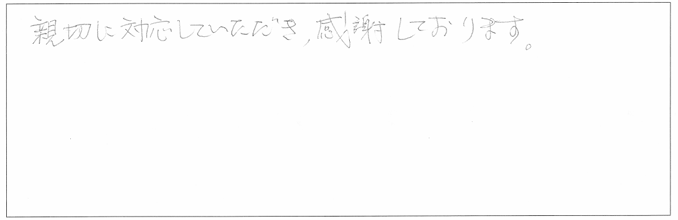 親切に対応していただき,感謝しております。